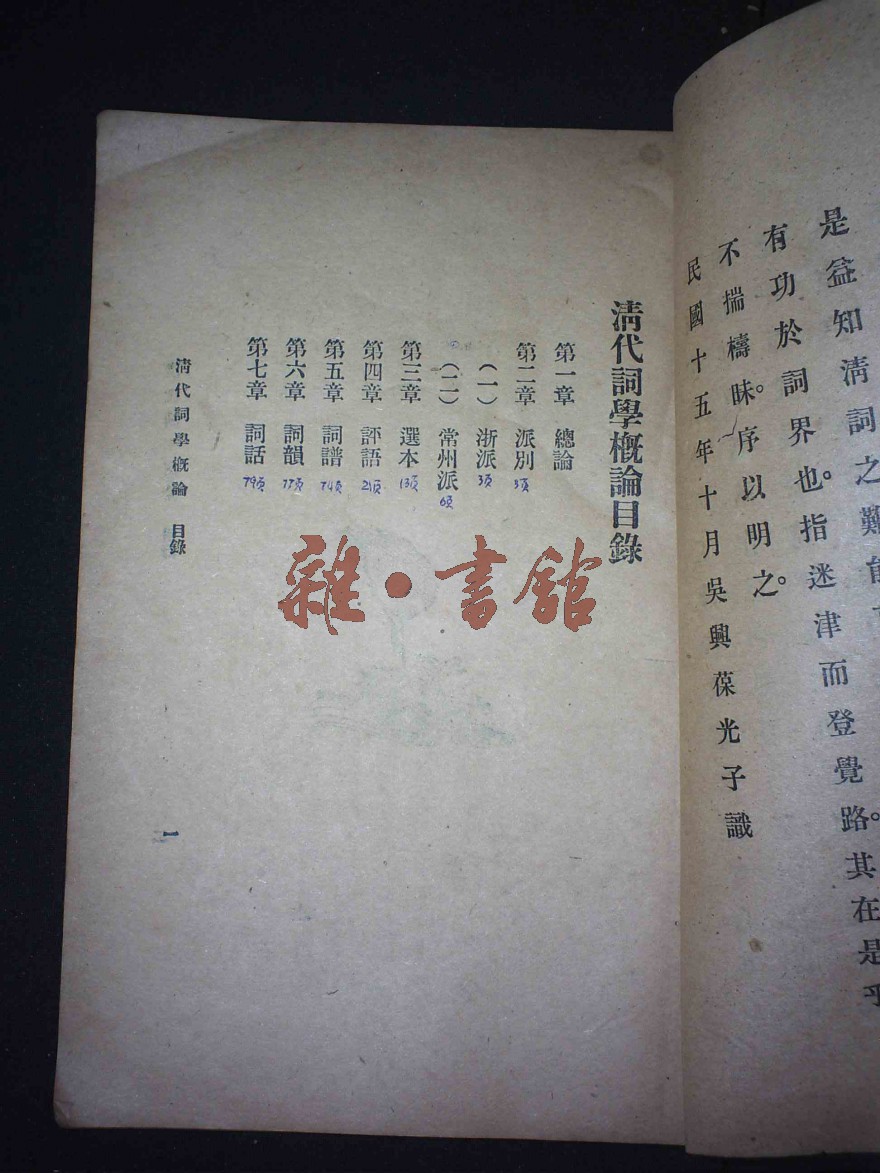 是益知清詞之難能
有功於詞界也。指迷津而登覺路。其在是乎
不揣檮昧。序以明之。
民國十五年十月吳興葆光子識
清代詞學槪論目錄
第一章 總論
第二章 派別 3頁
(一) 浙派 3頁
(二) 常州派 6頁
第三章 選本 13頁
第四章 評語 21頁
第五章 詞譜 74頁
第六章 詞韻 77頁
第七章 詞話 79頁
清代詞學槪論 目錄
一
雜·書館